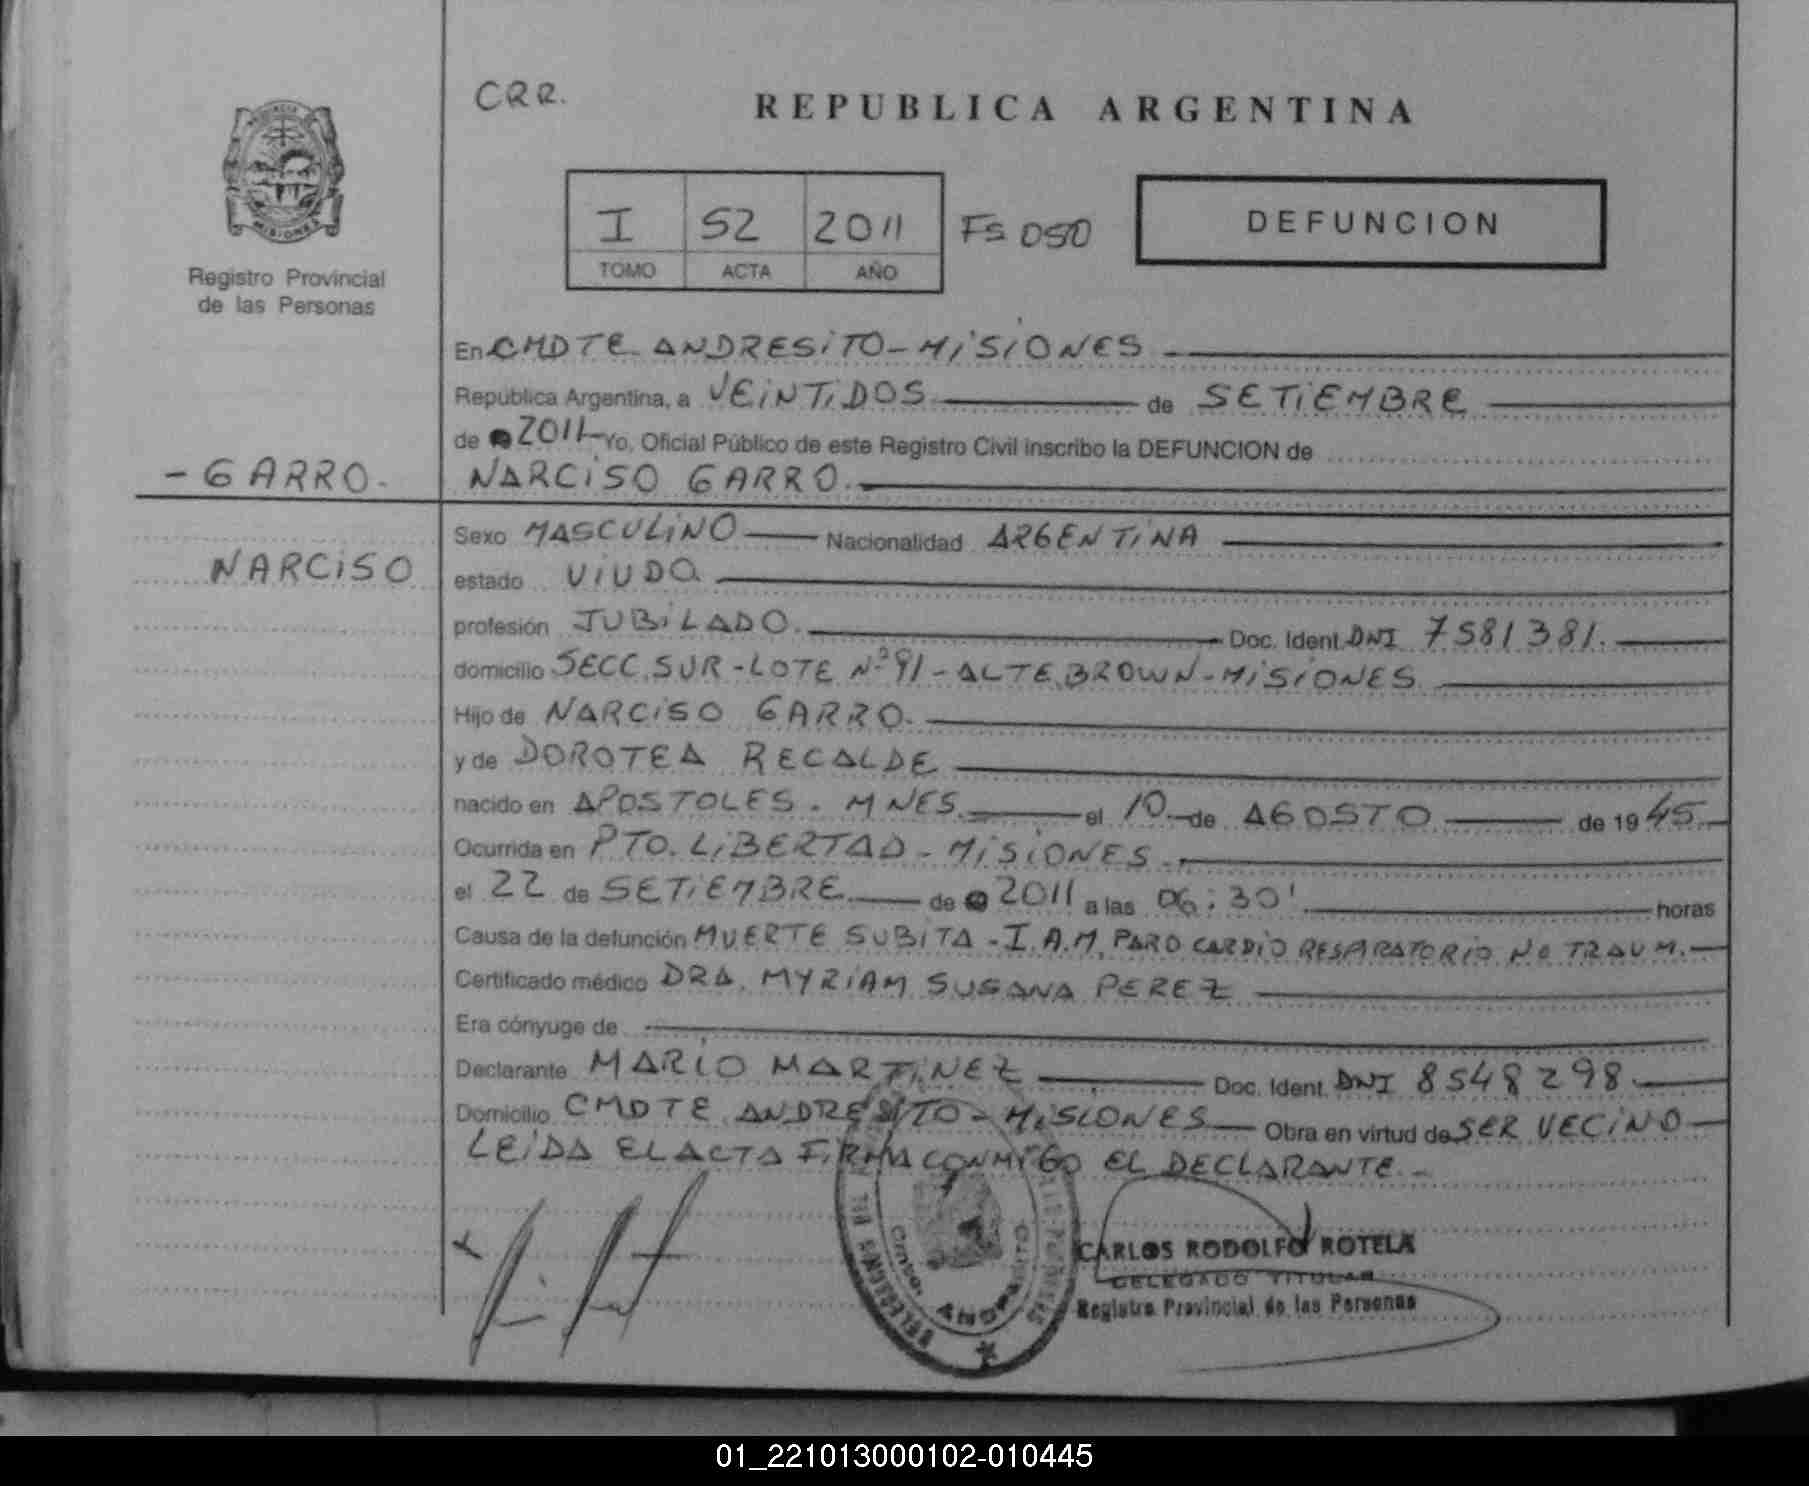 CRR.
REPUBLICA ARGENTINA
I 52 2011 Fs 050 DEFUNCION
TOMO ACTA AÑO
MISIONES
Registro Provincial
de las Personas
En CMDTE ANDRESITO - MISIONES
Republica Argentina, a VEINTIDOS de SETIEMBRE
de 2011 Yo, Oficial Público de este Registro Civil inscribo la DEFUNCION de
- GARRO -
NARCISO GARRO.
NARCISO
Sexo MASCULINO Nacionalidad ARGENTINA
estado VIUDO
profesión JUBILADO. Doc. Ident. DNI 7581381.
domicilio SECC. SUR - LOTE Nº 91 - ALTE. BROWN - MISIONES
Hijo de NARCISO GARRO.
y de DOROTEA RECALDE
nacido en APOSTOLES - MNES. el 10 de AGOSTO de 1945
Ocurrida en PTO. LIBERTAD - MISIONES.
el 22 de SETIEMBRE de 2011 a las 06:30' horas
Causa de la defunción MUERTE SUBITA - I.A.M. PARO CARDIO RESPIRATORIO NO TRAUM.
Certificado médico DRA. MYRIAM SUSANA PEREZ
Era cónyuge de
Declarante MARIO MARTINEZ Doc. Ident. DNI 8548298
Domicilio CMDTE ANDRESITO - MISIONES Obra en virtud de SER VECINO
LEIDA EL ACTA FIRMA CONMIGO EL DECLARANTE. -
CARLOS RODOLFO ROTELA
DELEGADO TITULAR
Registro Provincial de las Personas
01_221013000102-010445